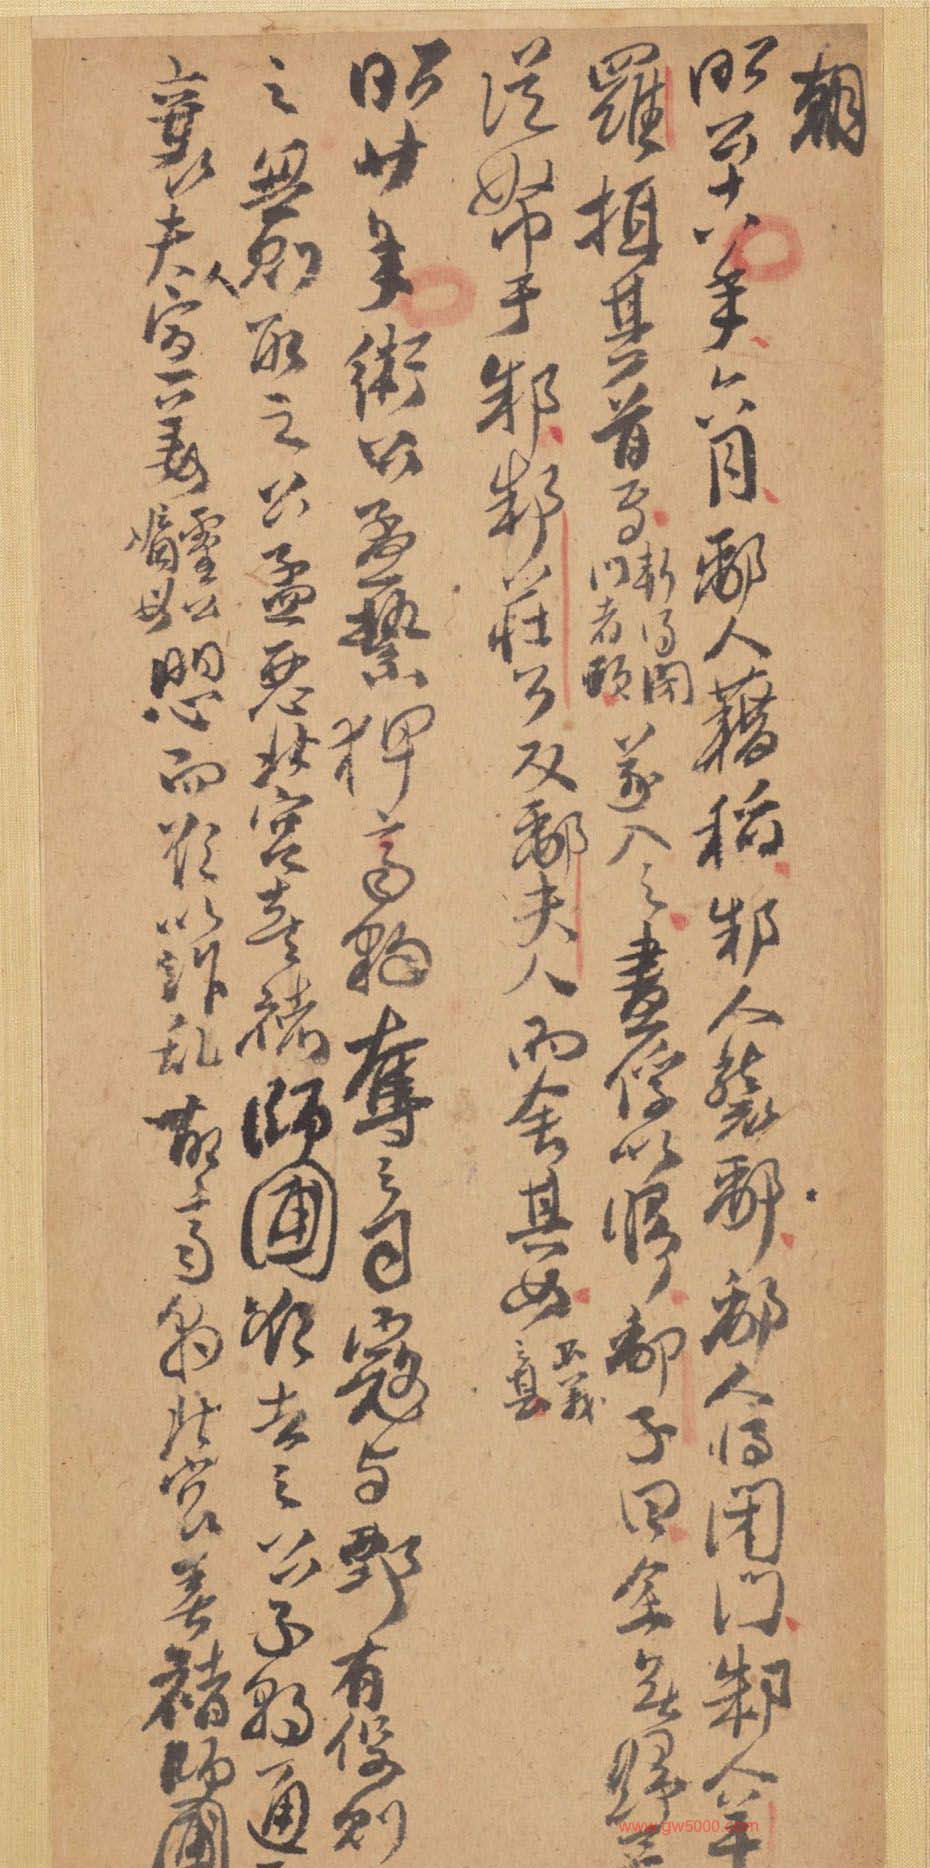 朝
昭公十八年六月鄅人藉稻邾人襲鄅鄅人將閉門邾人羊
羅攝其首焉
斬得閉
門者頭
遂入之盡俘以歸鄅子曰余無歸矣
從帑于邾邾莊公反鄅夫人而舍其女
不義
昭廿年衛公孟縶狎齊豹奪之司寇与鄄有役則
之無則取之公孟惡北宮喜褚師圃欲去之公子朝通
襄夫人宣姜
靈公
嫡母
懼而欲以作乱故齊豹北宮喜褚師圃
www.gw5000.com